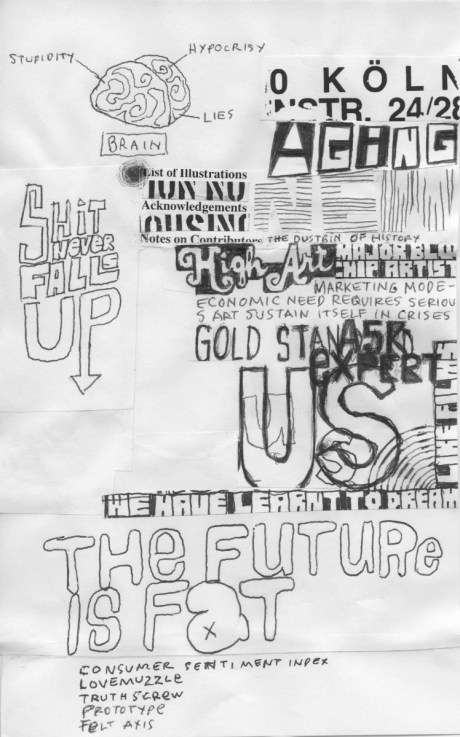 STUPIDITY
HYPOCRISY
LIES
BRAIN
0 KÖLN
NSTR. 24/28
AGING
List of Illustrations
Acknowledgements
OUSING
Notes on Contributors
NE
THE DUSTBIN OF HISTORY
SHiT
NEVER
FALLS
UP
High-Art
MAJOR BLU
HIP ARTIST
MARKETING MODE-
ECONOMIC NEED REQUIRES SERIOU
S ART SUSTAIN ITSELF IN CRISES
GOLD STAN
ASK
EXPERT
US
WE HAVE LEARNT TO DREAM
THE FUTURe
iS FAT
CONSUMER SENTIMENT INDEX
LOVEMUZZLE
TRUTHSCREW
PROTOTYPE
FELT AXIS